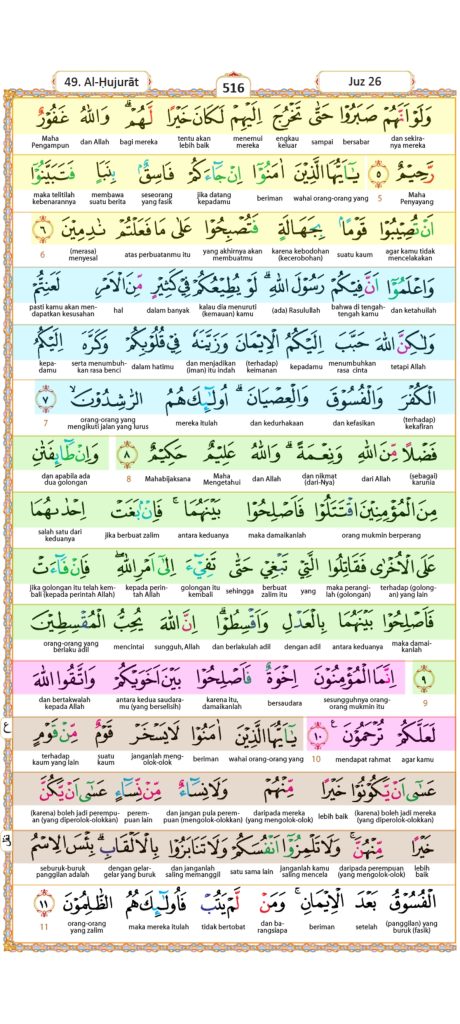 49. Al-Ḥujurāt
516
Juz 26
وَلَوْ اَنَّهُمْ صَبَرُوْا حَتّٰى تَخْرُجَ اِلَيْهِمْ لَكَانَ خَيْرًا لَّهُمْ ۗ وَاللّٰهُ غَفُوْرٌ
dan sekiranya mereka bersabar sampai engkau keluar menemui mereka tentu akan lebih baik bagi mereka dan Allah Maha Pengampun
رَّحِيْمٌ ۝٥ يٰٓاَيُّهَا الَّذِيْنَ اٰمَنُوْٓا اِنْ جَاۤءَكُمْ فَاسِقٌۢ بِنَبَاٍ فَتَبَيَّنُوْٓا
Maha Penyayang 5 wahai orang-orang yang beriman jika datang kepadamu seseorang yang fasik membawa suatu berita maka telitilah kebenarannya
اَنْ تُصِيْبُوْا قَوْمًاۢ بِجَهَالَةٍ فَتُصْبِحُوْا عَلٰى مَا فَعَلْتُمْ نٰدِمِيْنَ ۝٦
agar kamu tidak mencelakakan suatu kaum karena kebodohan (kecerobohan) yang akhirnya akan membuatmu atas perbuatanmu itu (merasa) menyesal 6
وَاعْلَمُوْٓا اَنَّ فِيْكُمْ رَسُوْلَ اللّٰهِ ۗ لَوْ يُطِيْعُكُمْ فِيْ كَثِيْرٍ مِّنَ الْاَمْرِ لَعَنِتُّمْ
dan ketahuilah bahwa di tengah-tengah kamu (ada) Rasulullah kalau dia menuruti (kemauan) kamu dalam banyak hal pasti kamu akan mendapatkan kesusahan
وَلٰكِنَّ اللّٰهَ حَبَّبَ اِلَيْكُمُ الْاِيْمَانَ وَزَيَّنَهٗ فِيْ قُلُوْبِكُمْ وَكَرَّهَ اِلَيْكُمُ
tetapi Allah menumbuhkan rasa cinta kepadamu (terhadap) keimanan dan menjadikan (iman) itu indah dalam hatimu serta menumbuhkan rasa benci kepadamu
الْكُفْرَ وَالْفُسُوْقَ وَالْعِصْيَانَ ۗ اُولٰۤىِٕكَ هُمُ الرّٰشِدُوْنَۙ ۝٧
(terhadap) kekafiran dan kefasikan dan kedurhakaan mereka itulah orang-orang yang mengikuti jalan yang lurus 7
فَضْلًا مِّنَ اللّٰهِ وَنِعْمَةً ۗ وَاللّٰهُ عَلِيْمٌ حَكِيْمٌ ۝٨ وَاِنْ طَاۤىِٕفَتٰنِ
(sebagai) karunia dari Allah dan nikmat (dari-Nya) dan Allah Maha Mengetahui Mahabijaksana 8 dan apabila ada dua golongan
مِنَ الْمُؤْمِنِيْنَ اقْتَتَلُوْا فَاَصْلِحُوْا بَيْنَهُمَا ۚ فَاِنْۢ بَغَتْ اِحْدٰىهُمَا
orang mukmin berperang maka damaikanlah antara keduanya jika berbuat zalim salah satu dari keduanya
عَلَى الْاُخْرٰى فَقَاتِلُوا الَّتِيْ تَبْغِيْ حَتّٰى تَفِيْۤءَ اِلٰٓى اَمْرِ اللّٰهِ ۖ فَاِنْ فَاۤءَتْ
terhadap (golongan) yang lain maka perangilah (golongan) yang berbuat zalim itu sehingga golongan itu kembali kepada perintah Allah jika golongan itu telah kembali (kepada perintah Allah)
فَاَصْلِحُوْا بَيْنَهُمَا بِالْعَدْلِ وَاَقْسِطُوْا ۗ اِنَّ اللّٰهَ يُحِبُّ الْمُقْسِطِيْنَ
maka damaikanlah antara keduanya dengan adil dan berlakulah adil sungguh, Allah mencintai orang-orang yang berlaku adil
۝٩ اِنَّمَا الْمُؤْمِنُوْنَ اِخْوَةٌ فَاَصْلِحُوْا بَيْنَ اَخَوَيْكُمْ وَاتَّقُوا اللّٰهَ
9 sesungguhnya orang-orang mukmin itu bersaudara karena itu, damaikanlah antara kedua saudaramu (yang berselisih) dan bertakwalah kepada Allah
لَعَلَّكُمْ تُرْحَمُوْنَ ۝١٠ يٰٓاَيُّهَا الَّذِيْنَ اٰمَنُوْا لَا يَسْخَرْ قَوْمٌ مِّنْ قَوْمٍ
agar kamu mendapat rahmat 10 wahai orang-orang yang beriman janganlah mengolok-olok suatu kaum terhadap kaum yang lain
ع
عَسٰٓى اَنْ يَّكُوْنُوْا خَيْرًا مِّنْهُمْ وَلَا نِسَاۤءٌ مِّنْ نِّسَاۤءٍ عَسٰٓى اَنْ يَّكُنَّ
(karena) boleh jadi mereka (yang diperolok-olokkan) lebih baik daripada mereka (yang mengolok-olok) dan jangan pula perempuan (mengolok-olokkan) perempuan lain (karena) boleh jadi perempuan (yang diperolok-olokkan)
خَيْرًا مِّنْهُنَّ ۚ وَلَا تَلْمِزُوْٓا اَنْفُسَكُمْ وَلَا تَنَابَزُوْا بِالْاَلْقَابِ ۗ بِئْسَ الِاسْمُ
lebih baik daripada perempuan (yang mengolok-olok) janganlah kamu saling mencela satu sama lain dan janganlah saling memanggil dengan gelar-gelar yang buruk seburuk-buruk panggilan adalah
الْفُسُوْقُ بَعْدَ الْاِيْمَانِ ۚ وَمَنْ لَّمْ يَتُبْ فَاُولٰۤىِٕكَ هُمُ الظّٰلِمُوْنَ ۝١١
(panggilan) yang buruk (fasik) setelah beriman dan barangsiapa tidak bertobat maka mereka itulah orang-orang yang zalim 11